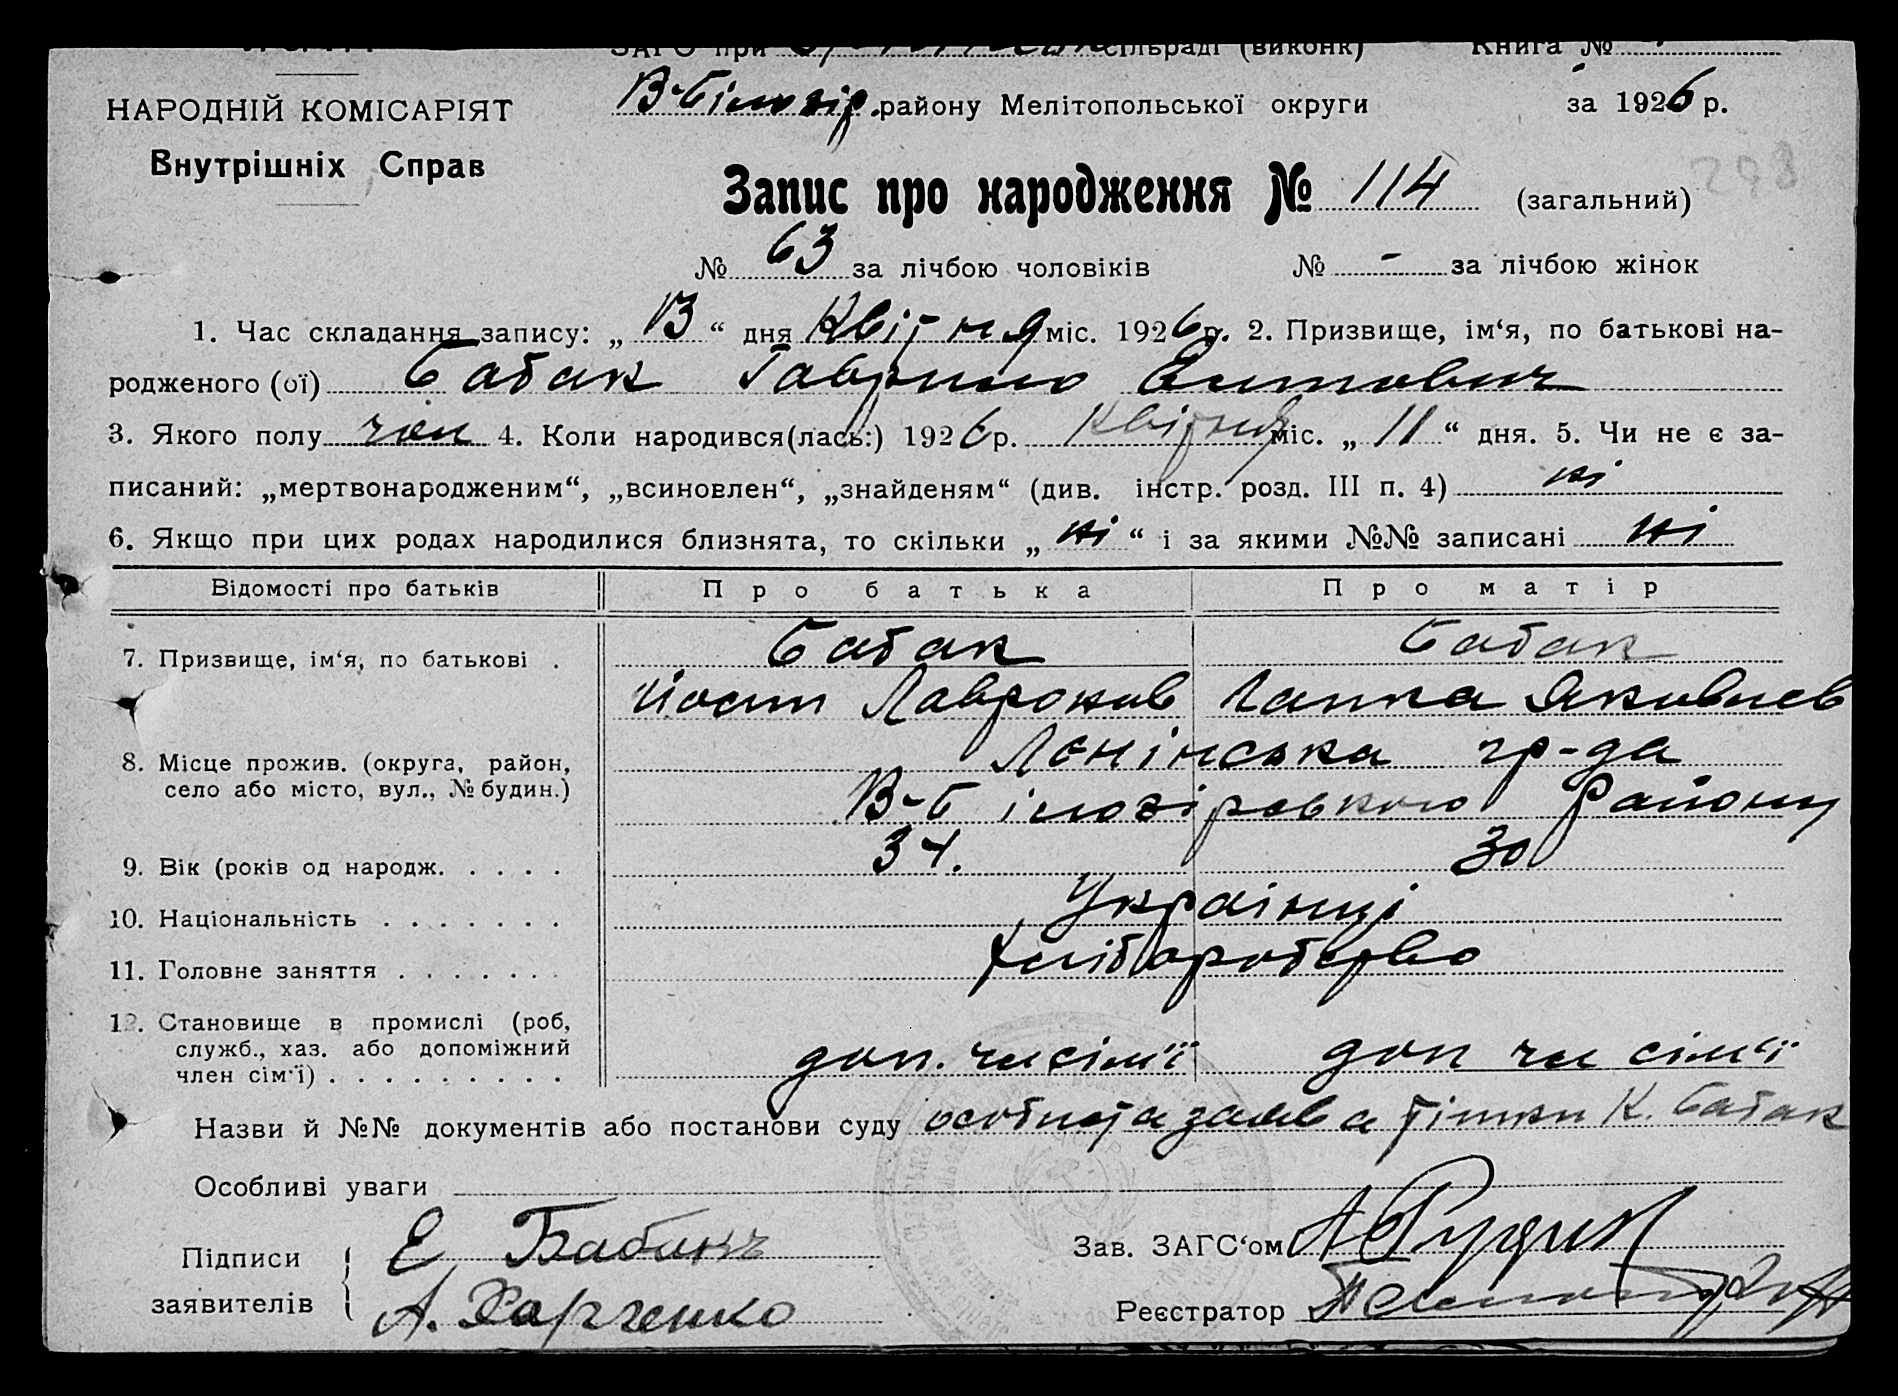 ЗАГС при сільраді (виконк) Книга №
НАРОДНІЙ КОМІСАРІЯТ
Внутрішніх Справ
В-Білозір. району Мелітопольської округи за 1926 р.
298
Запис про народження № 114 (загальний)
№ 63 за лічбою чоловіків № - за лічбою жінок
1. Час складання запису: „ 13 “ дня Квітня міс. 1926 р. 2. Призвище, ім‘я, по батькові на-
родженого (ої) Бабак Гаврило
3. Якого полу чол 4. Коли народився(лась:) 1926 р. Квітня міс. „ 11 “ дня. 5. Чи не є за-
писаний: „мертвонародженим“, „всиновлен“, „знайденям“ (див. інстр. розд. III п. 4) ні
6. Якщо при цих родах народилися близнята, то скільки „ ні “ і за якими №№ записані ні
Відомості про батьків Про батька Про матір
7. Призвище, ім‘я, по батькові . Бабак Бабак
Лавронов Ганна Яковлев
8. Місце прожив. (округа, район, Ленінська гр-да
село або місто, вул., № будин.) В-Білозіровкого Району
9. Вік (років од народж. . . . . 34. 30
10. Національність . . . . . . . Українці
11. Головне заняття . . . . . . . Хліборобство
12. Становище в промислі (роб,
служб., хаз. або допоміжний доп. чл сім‘ї доп чл сім‘ї
член сім‘ї) . . . . . . . . .
Назви й №№ документів або постанови суду особиста заява К. Бабак
Особливі уваги
Підписи Е Бабакъ Зав. ЗАГС‘ом
заявителів А. Харченко Реєстратор